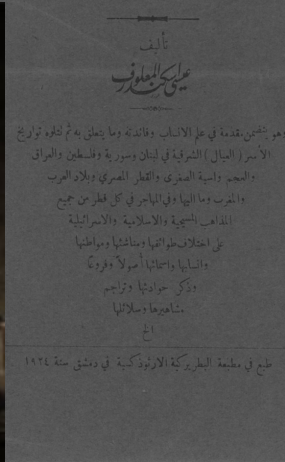 تأليف
عيسى اسكندر المعلوف
وهو يتضمن مقدمة في علم الانساب وفائدته وما يتعلق به ثم تتلوه تواريخ
الأسر ( العيال ) الشرقية في لبنان وسورية وفلسطين والعراق
والعجم واسية الصغرى والقطر المصري وبلاد العرب
والمغرب وما اليها وفي المهاجر في كل قطر من جميع
المذاهب المسيحية والاسلامية والاسرائيلية
على اختلاف طوائفها ومناشئها ومواطنها
وانسابها واسمائها أصولاً وفروعًا
وذكر حوادثها وتراجم
مشاهيرها وسلائلها
الخ
طبع في مطبعة البطريركية الارثوذكسية في دمشق سنة ١٩٢٤